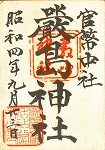 官幣中社
嚴島神社
昭和四年九月廿三日